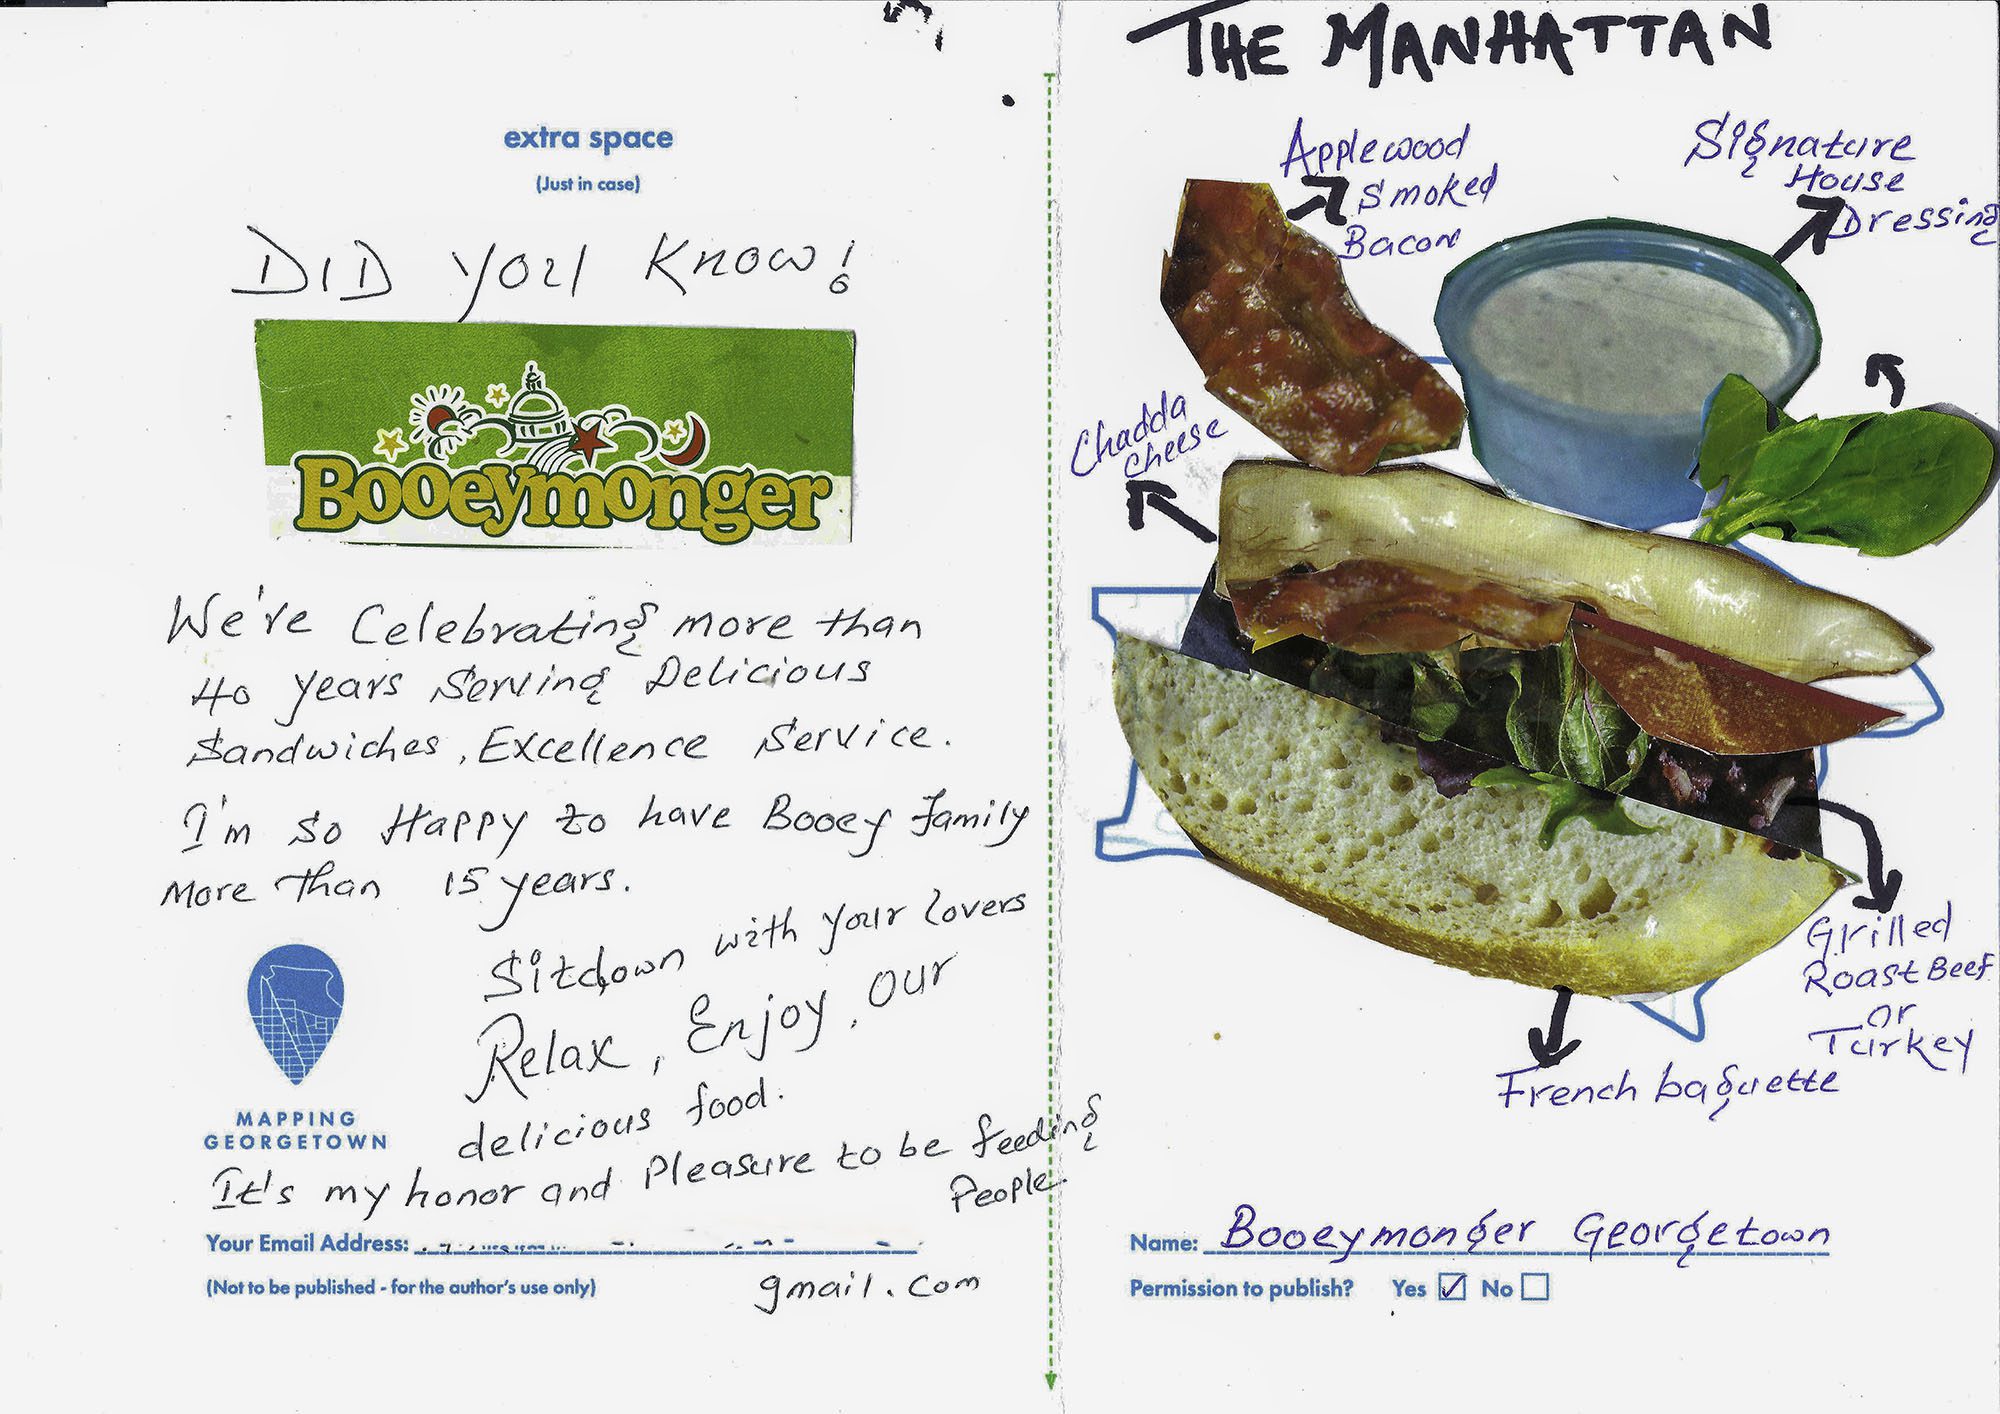 extra space
(Just in case)
DID YOU KNOW!
Booeymonger
We're Celebrating more than
40 years Serving Delicious
Sandwiches, Excellence Service.
I'm so Happy to have Booey family
More than 15 years.
Sitdown with your lovers
Relax, Enjoy, our
delicious food.
MAPPING
GEORGETOWN
It's my honor and pleasure to be feeding
People.
Your Email Address:
(Not to be published - for the author's use only)
gmail.com
THE MANHATTAN
Applewood
Smoked
Bacon
Signature
House
Dressing
Chadda
Cheese
Grilled
Roast Beef
or
Turkey
French baguette
Name: Booeymonger Georgetown
Permission to publish? Yes No